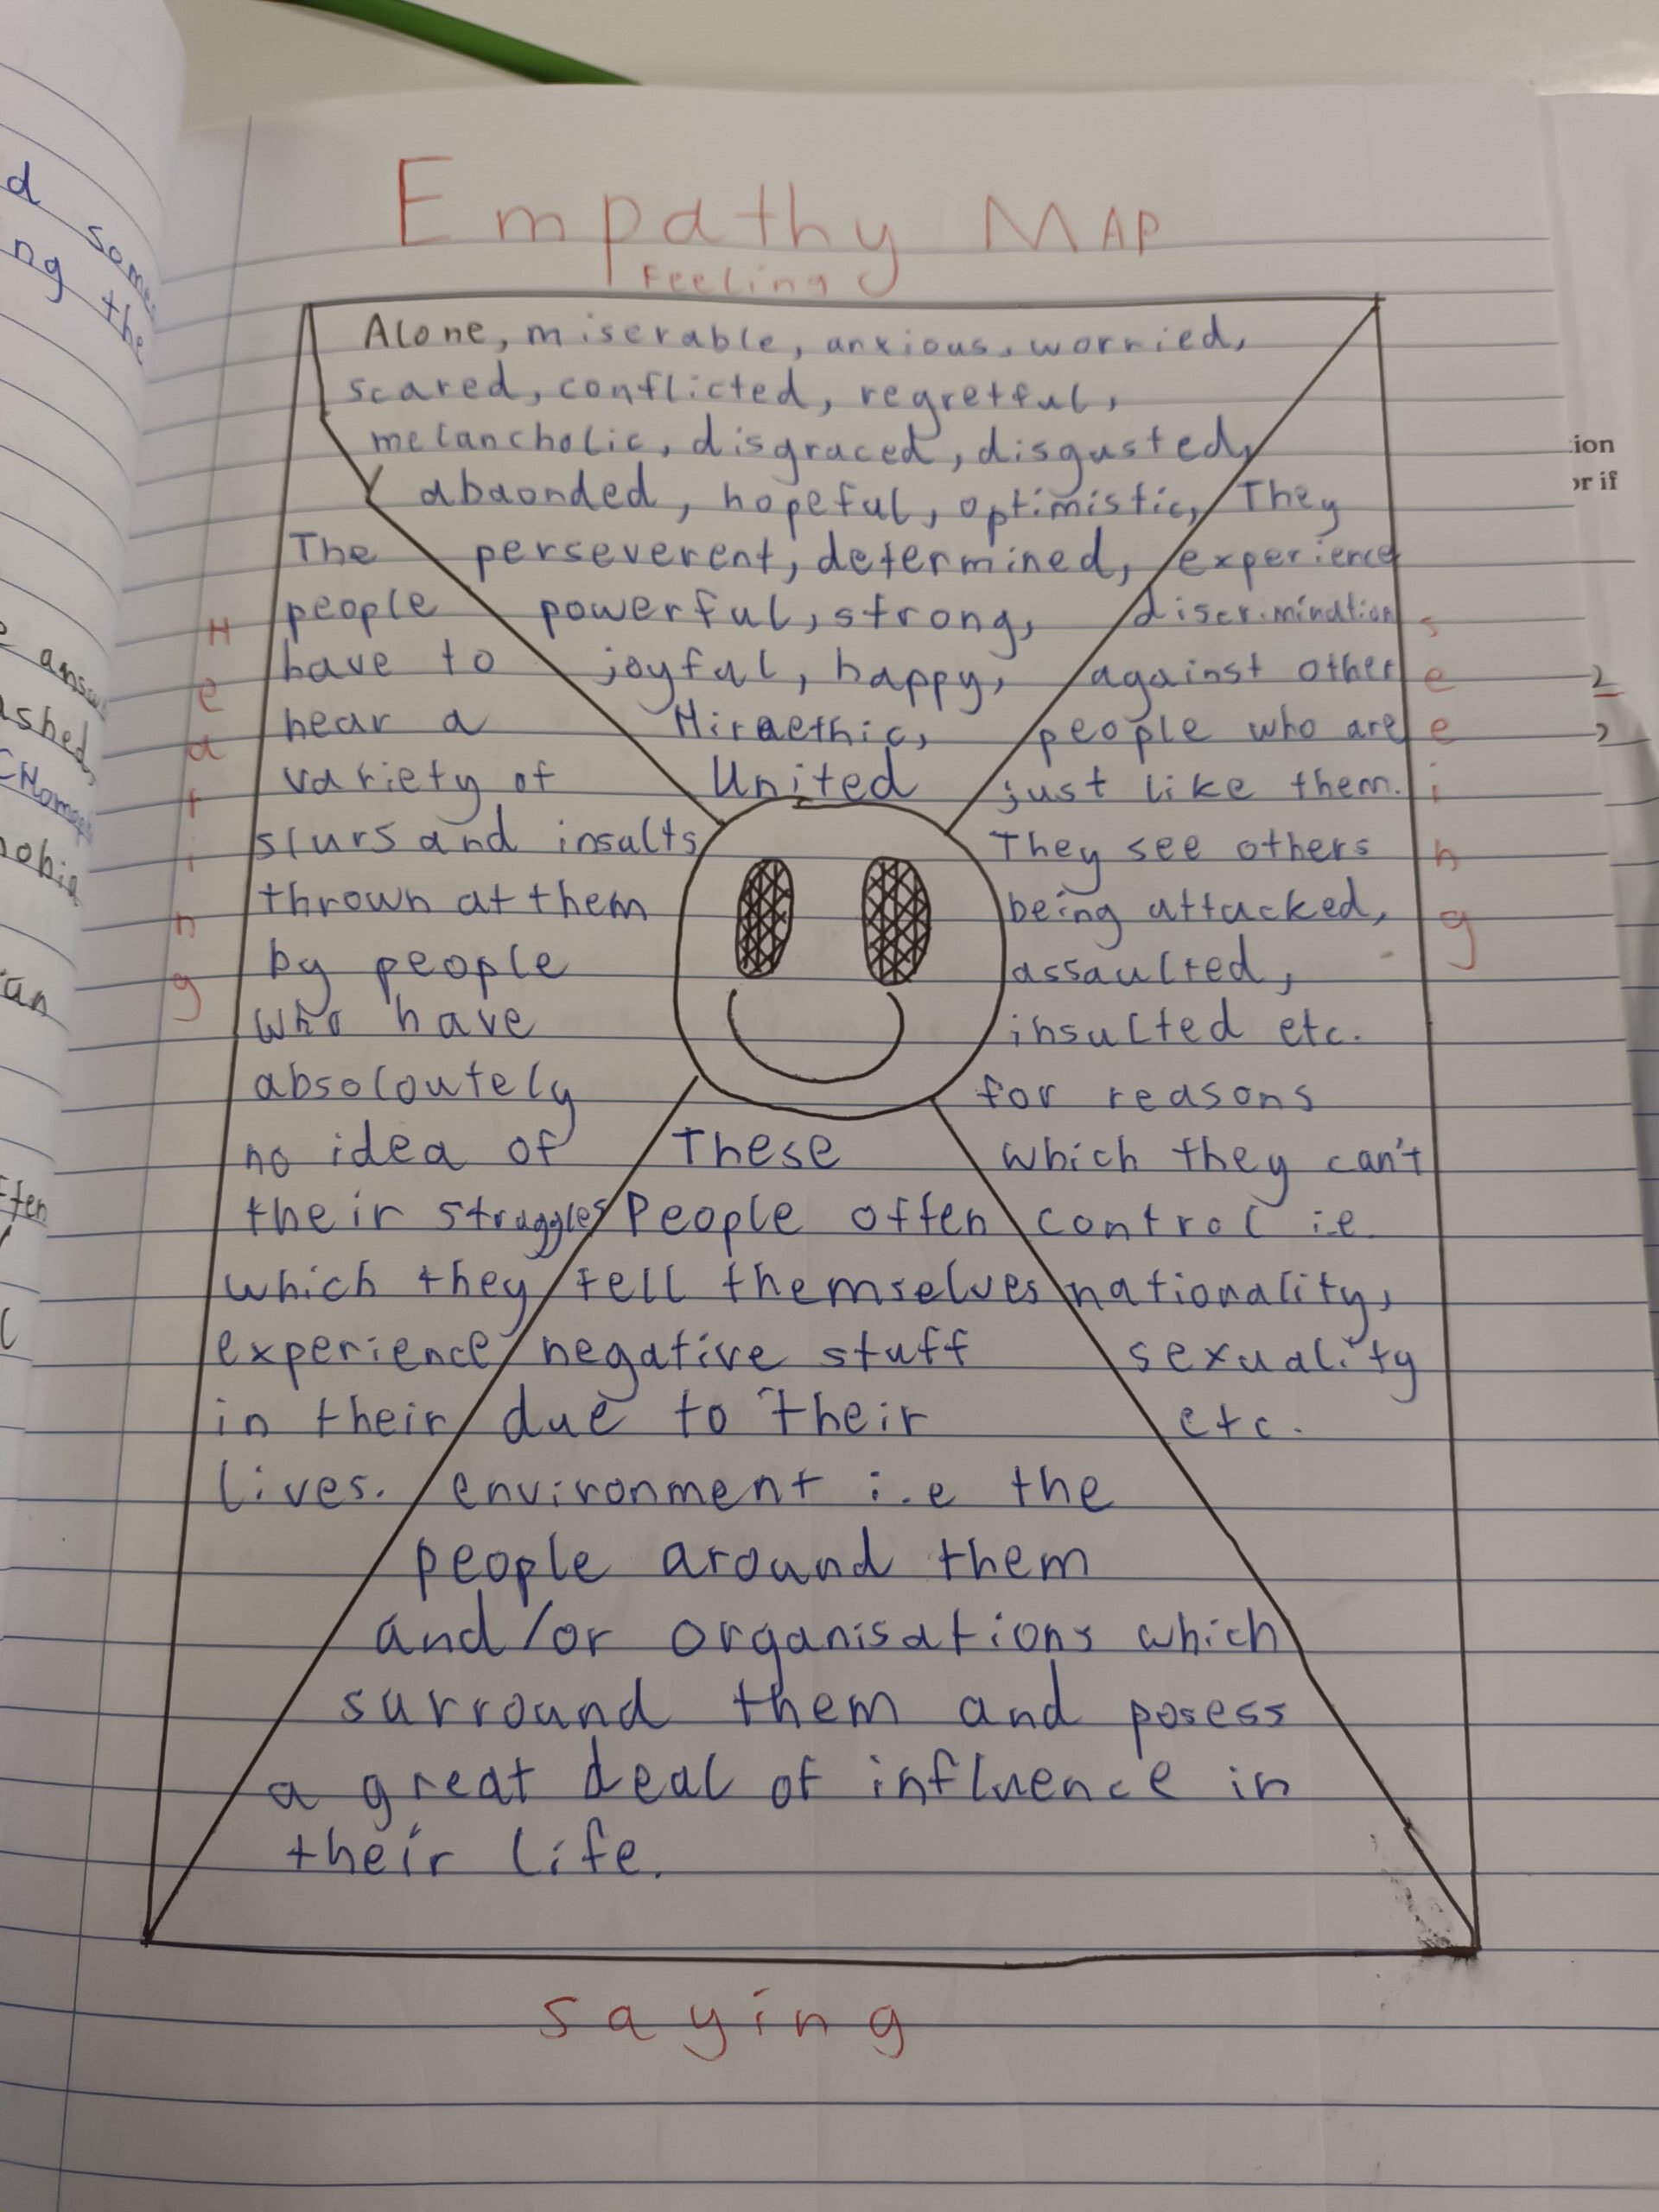 Empathy MAP
Feeling
Alone, miserable, anxious, worried,
scared, conflicted, regretful,
melancholic, disgraced, disgusted,
abaonded, hopeful, optimistic,
perseverent, determined,
powerful, strong,
joyful, happy,
Hiraethic,
United
Hearing
The
people
have to
hear a
variety of
slurs and insults
thrown at them
by people
who have
absoloutely
no idea of
their struggles
which they
experience
in their
lives.
seeing
They
experience
discrimination
against other
people who are
just like them.
They see others
being attacked,
assaulted,
insulted etc.
for reasons
which they can't
control i.e.
nationality,
sexuality
etc.
These
People often
tell themselves
negative stuff
due to their
environment i.e the
people around them
and/or organisations which
surround them and posess
a great deal of influence in
their life.
saying
d some
ng the
ashed,
ion
or if